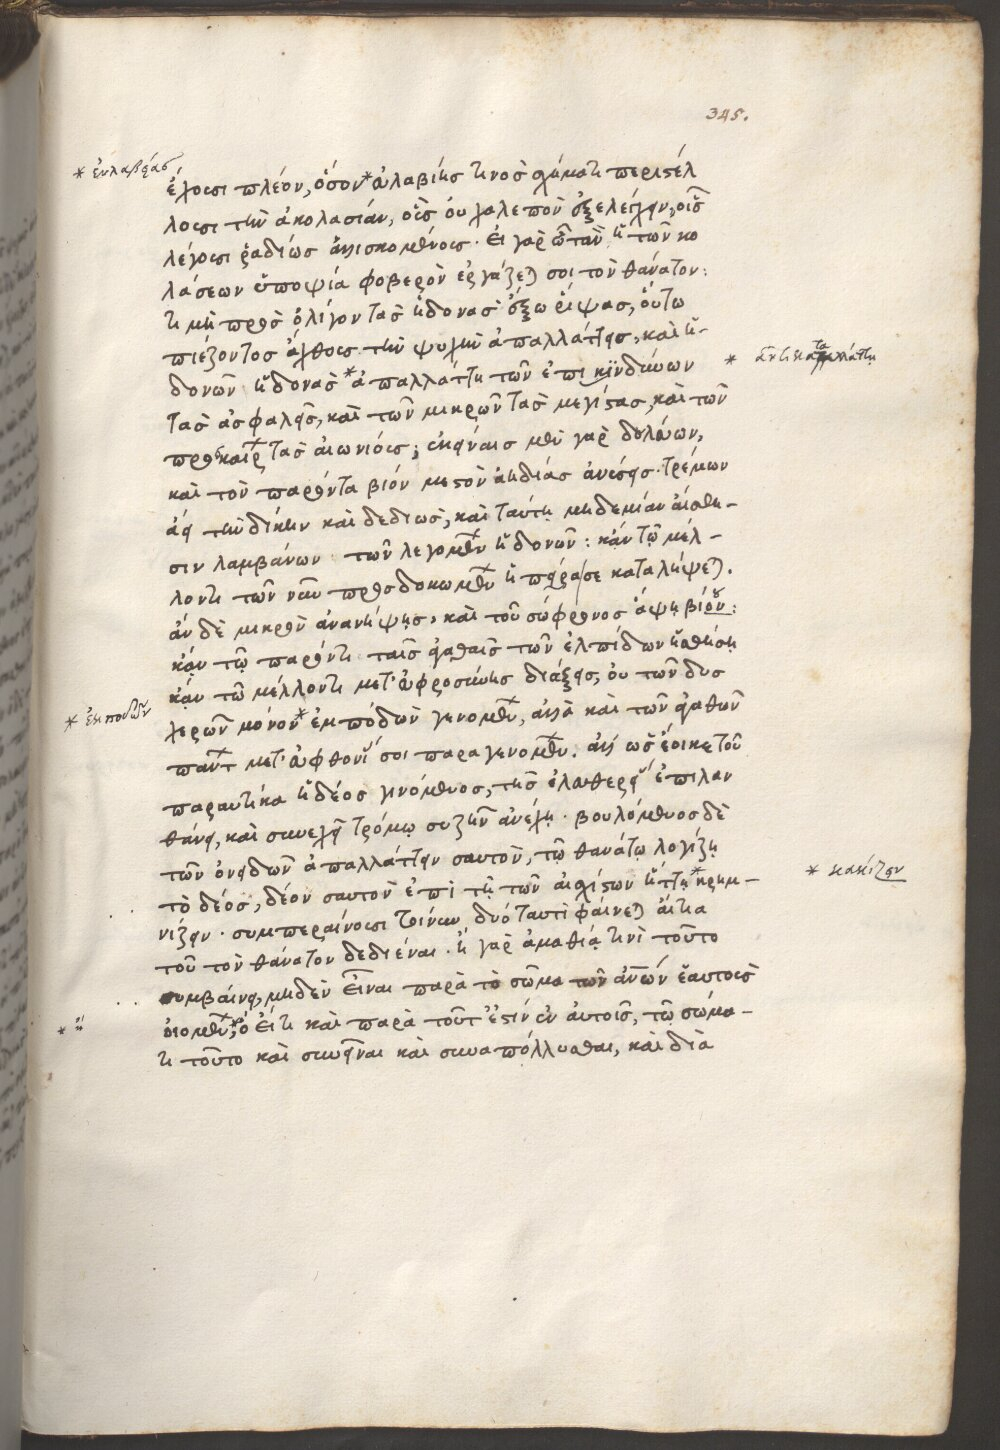 345.
* εὐλαβείας
ἔχουσι πλέον, ὅσον * εὐλαβίης τινος χήματι περιστέλ
λουσι την ἀκολασίαν, οἷς οὐ χαλεπον ἐξελέγχειν, οἷς
λέγουσι ῥαδίως ἁλισκομένοις. εἰ γαρ ὦταν ἡ τῶν κο
λάσεων ὑποψία φοβερον ἐργάζεται σοι τον θάνατον:
τι μη προς ὀλίγον τας ἡδονας ἔξω ῥίψας, οὕτω
πιέζοντος ἄχθους την ψυχην ἀπαλλάττεις, και ἡ-
δονῶν ἡδονας * ἀπαλλάττη τῶν ἐπικινδύνων
* ἀντικαταλλάττη
τας ἀσφαλεῖς, και τῶν μικρῶν τας μεγίστας, και τῶν
προσκαίρων τας αἰωνίους; ἐκείναις μεν γαρ δουλεύων,
και τον παρόντα βίον μεστον ἀηδίας ἀνέσεις. τρέμων
ἀεὶ την δίκην και δεδιως, και ταύτη μηδεμίαν αἴσθη-
σιν λαμβάνων τῶν λεγομένων ἡδονῶν: κἀν τῷ μέλ-
λοντι τῶν νῦν προσδοκωμένων ἡ πεῖρά σε καταλήψεται.
ἂν δε μικρον ἀνανήψης, και τοῦ σώφρονος ἅψη βίου:
κἀν τῷ παρόντι ταῖς ἀγαθαῖς τῶν ἐλπίδων ἡσθήση
κἀν τῶ μέλλοντι μετ' εὐφροσύνης διάξεις, οὐ τῶν δυσ
χερῶν μόνον * ἐμπόδων γενομένων, ἀλλὰ και τῶν ἀγαθῶν
* ἐκποδῶν
πάντων μετ' εὐφθονίας σοι παραγενομένων. ἀλλ' ὡς ἔοικε τοῦ
παραυτίκα ἡδέος γινόμενος, της ἐλευθερίας ἐπιλαν
θάνη, και συνεχεῖ τρόμῳ συζῆν ἀνέχη. βουλόμενος δε
τῶν ὀνειδῶν ἀπαλλάττειν σαυτον, τῷ θανάτῳ λογίζη
το δέος, δέον σαυτον ἐπι τῇ τῶν αἰσχίστων ἥττῃ * κρημ-
* κακίζειν
νίζειν. συμπεραίνουσι τοίνυν δυό ταυτι φαίνεται αἴτια
τοῦ τον θάνατον δεδιέναι. ἢ γαρ ἀμαθίᾳ τινι τοῦτο
συμβαίνει, μηδεν εἶναι παρα το σῶμα τῶν ἀν̅ων ἑαυτους
οἰομένων, * ὁ εἴ τι και παρα τοῦτ' ἐστιν ἐν αὐτοῖς, τῷ σώμα-
* ἢ
τι τοῦτο και συμφῦναι και συναπόλλυσθαι, και δια